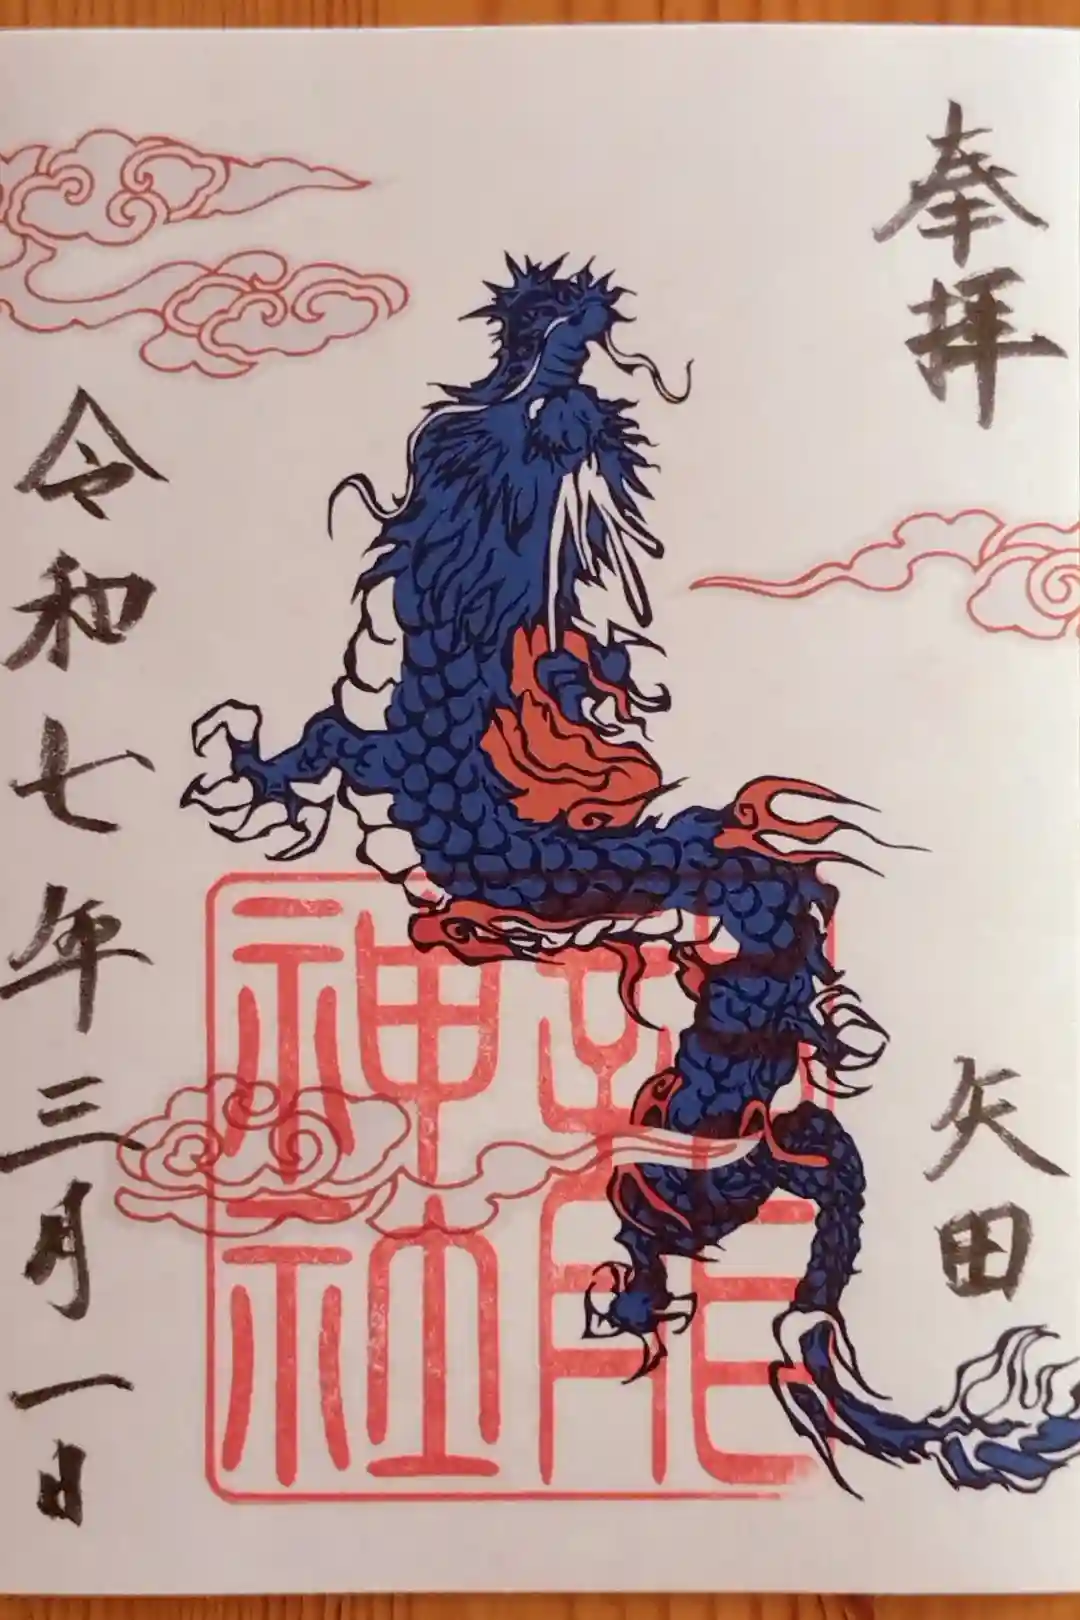 奉拝
矢田
龍神社
令和七年三月一日